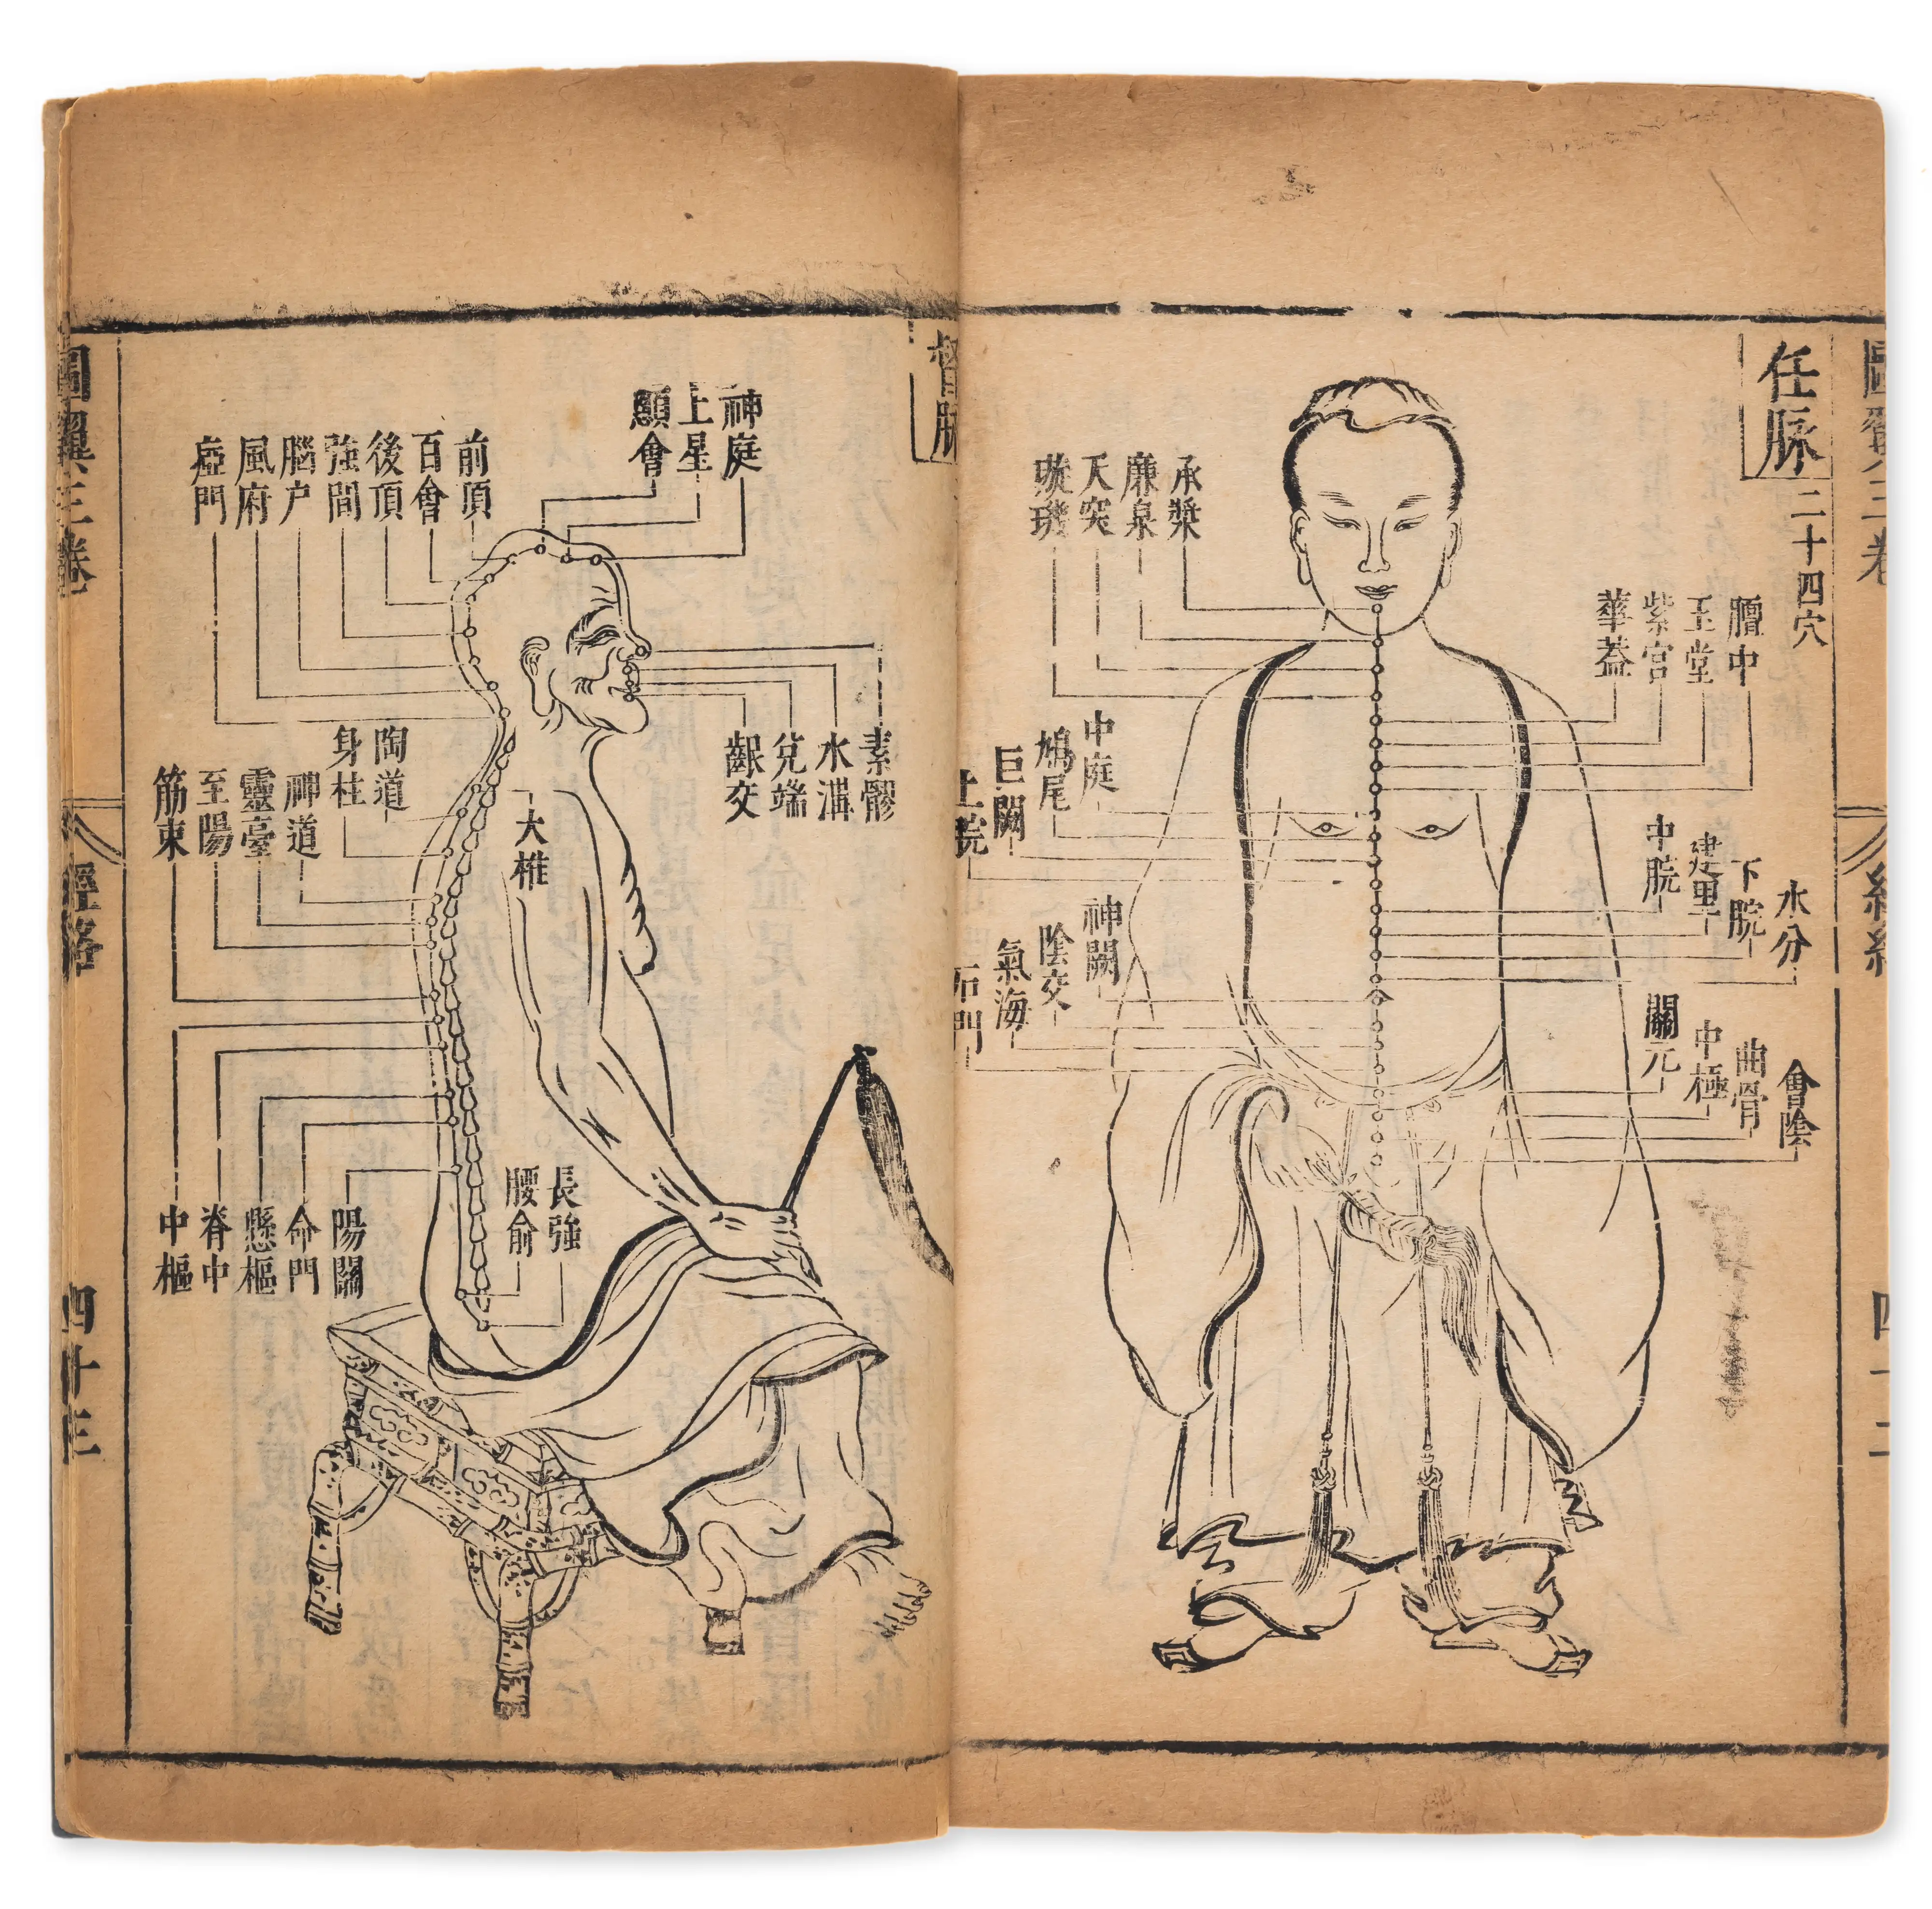 任脉
二十四穴
承漿
廉泉
天突
璇璣
膻中
玉堂
紫宮
華蓋
中庭
鳩尾
巨闕
上脘
水分
下脘
建里
中脘
神闕
陰交
氣海
石門
會陰
曲骨
中極
關元
督脉
神庭
上星
顖會
前頂
百會
後頂
強間
腦户
風府
瘂門
素髎
水溝
兌端
齦交
大椎
陶道
身柱
神道
靈臺
至陽
筋束
長強
腰俞
陽關
命門
懸樞
脊中
中樞
圖翼三卷
經絡
四十三